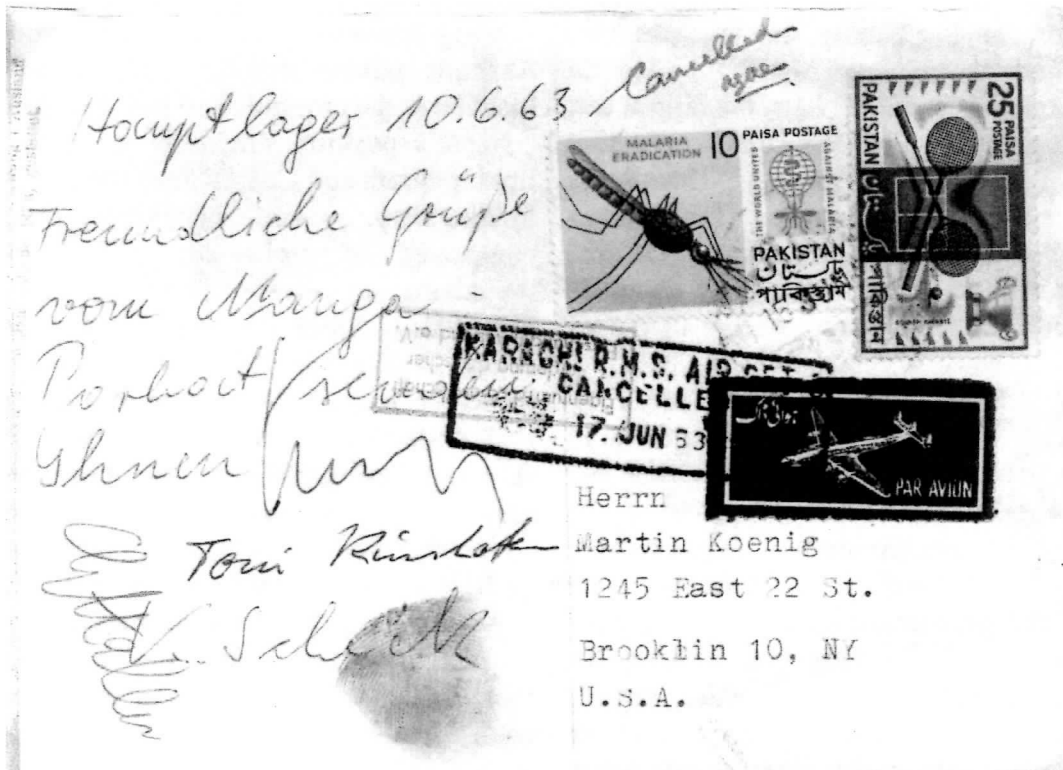 Hauptlager 10.6.63
Freundliche Grüße
vom Nanga-
Parbat senden
Ihnen
Toni Kinshofer
Cancelled
MALARIA
ERADICATION
10 PAISA POSTAGE
THE WORLD UNITED
AGAINST MALARIA
PAKISTAN
پاکستان
পাকিস্তান
25 PAISA
POSTAGE
PAKISTAN
پاکستان
পাকিস্তান
KARACHI R.M.S. AIR SET
CANCELLE
17. JUN 63
PAR AVION
Herrn
Martin Koenig
1245 East 22 St.
Brooklin 10, NY
U.S.A.